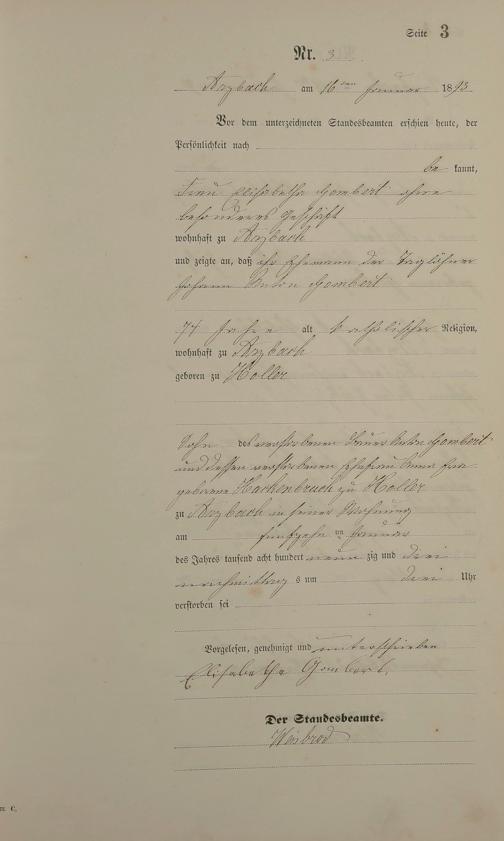 Seite 3
Nr. 3
Arzbach am 16ten Januar 1893
Vor dem unterzeichneten Standesbeamten erschien heute, der
Persönlichkeit nach
be kannt,
Frau Elisabetha Gombert ohne
besonderes Geschäft
wohnhaft zu Arzbach
und zeigte an, daß ihr Ehemann der Taglöhner
Johann Anton Gombert
74 Jahre alt katholischer Religion,
wohnhaft zu Arzbach
geboren zu Holler
Sohn des verstorbenen Anton Gombert
und dessen verstorbenen Ehefrau Anna
geborene Hachenbruch zu Holler
zu Arzbach in seiner Wohnung
am fünfzehnten Januar
des Jahres tausend acht hundert neunzig und drei
nachmittags um drei Uhr
verstorben sei
Vorgelesen, genehmigt und unterschrieben
Elisabetha Gombert
Der Standesbeamte.
Weisbrod
C.